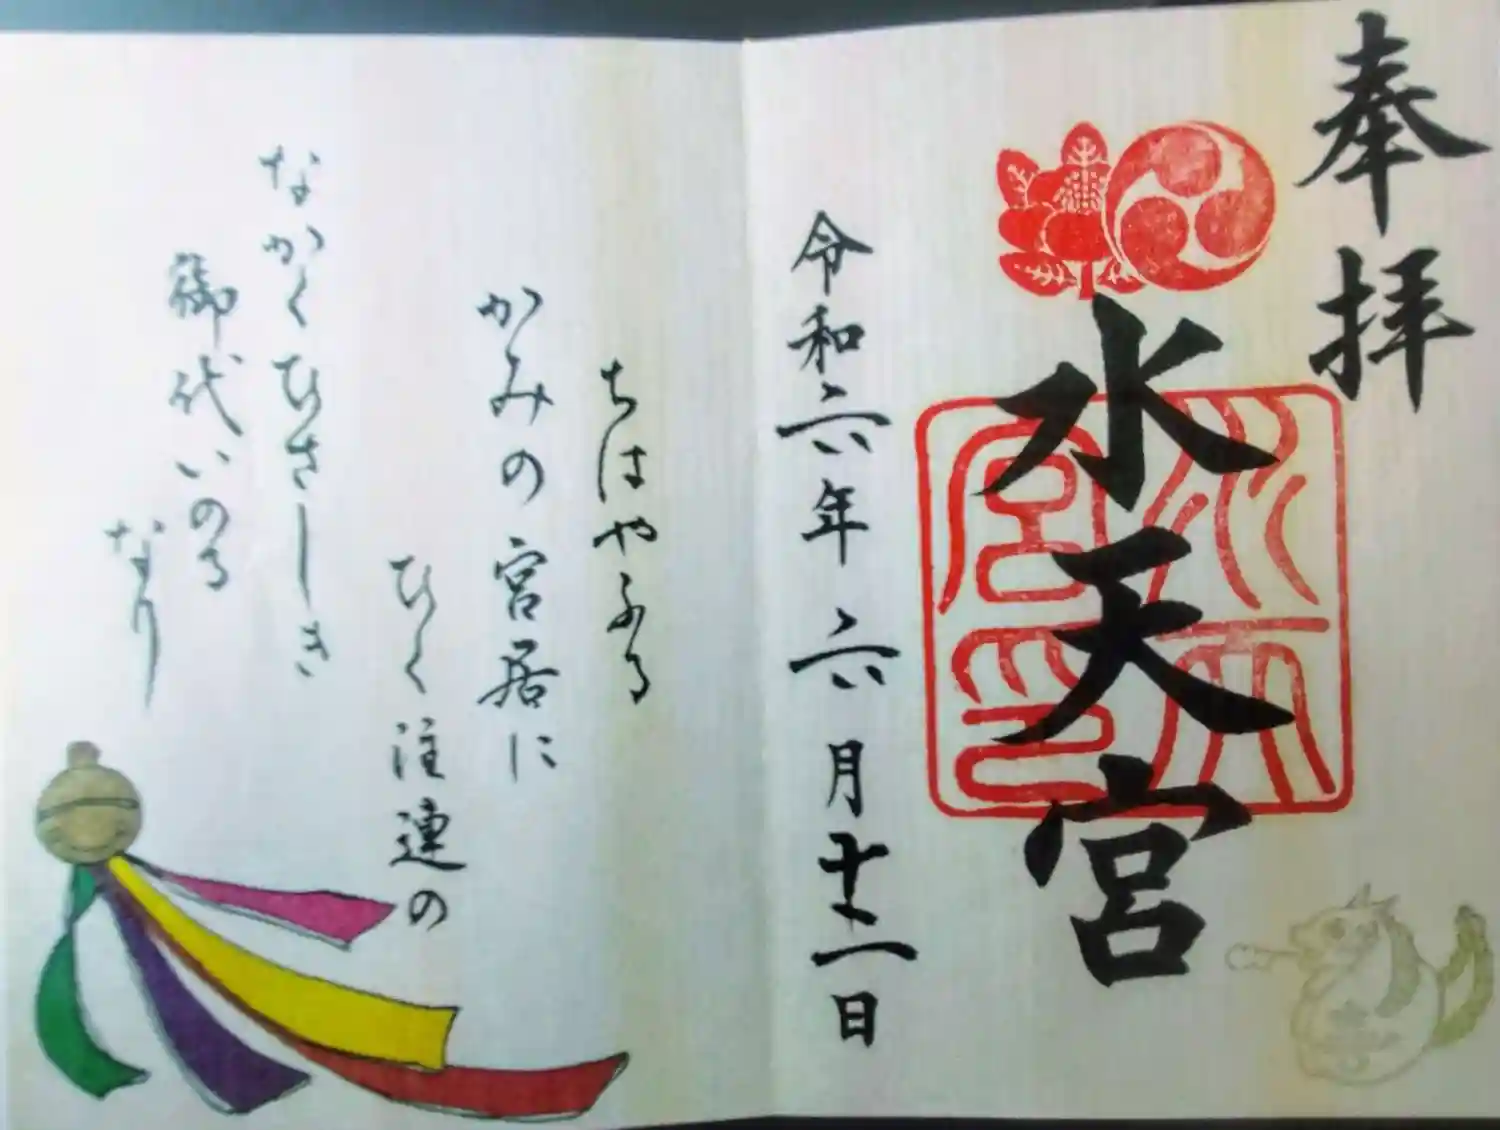 奉拝
水天宮
令和六年六月十二日
ちはやふる
かみの宮居に
ひく注連の
なかくひさしき
御代いのる
なり